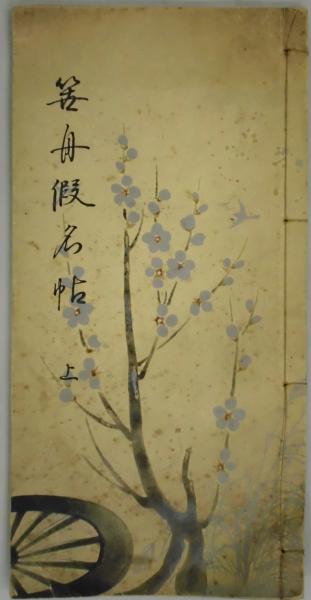 柴舟假名帖 上